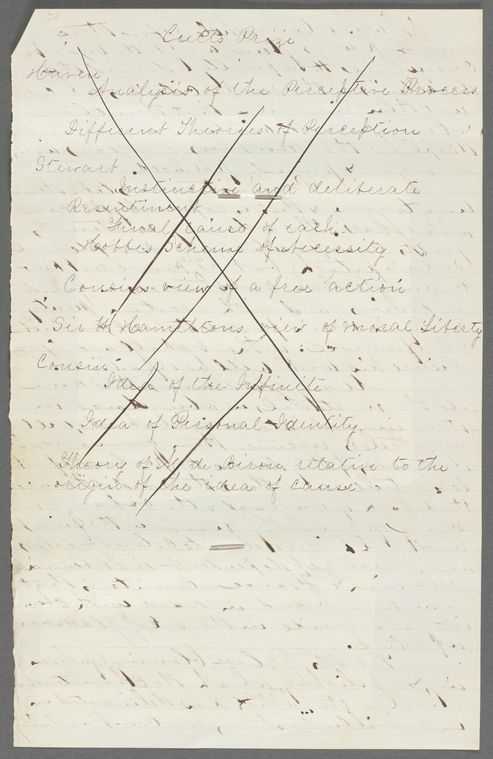 Cutts Prize
Haven
Analysis of the Perceptive Process
Different Theories of Perception
Stewart
Instinctive and deliberate
Resentment
Final Cause of each
Hobbes Scheme of Necessity
Cousins view of a free action
Sir W Hamiltons view of moral Liberty
Cousin
Idea of the Infinite
Idea of Personal Identity
Theory of M de Biron relative to the
origin of the idea of cause